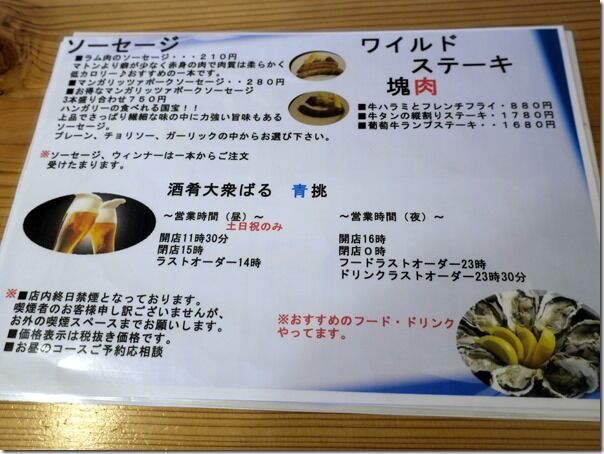 ソーセージ
■ラム肉のソーセージ・・・２１０円
マトンより癖が少なく赤身の肉で肉質は柔らかく
低カロリー♪おすすめの一本です。
■マンガリッツァポークソーセージ・・２８０円
■お得なマンガリッツァポークソーセージ
3本盛り合わせ７５０円
ハンガリーの食べれる国宝！！
上品でさっぱり繊細な味の中に力強い旨味もある
ソーセージ。
プレーン、チョリソー、ガーリックの中からお選び下さい。
※ソーセージ、ウィンナーは一本からご注文
受けたまります。
ワイルド
ステーキ
塊肉
■牛ハラミとフレンチフライ・８８０円
■牛タンの縦割りステーキ・１７８０円
■葡萄牛ランプステーキ・・１６８０円
酒肴大衆ばる　青挑
～営業時間（昼）～
土日祝のみ
開店11時30分
閉店15時
ラストオーダー14時
～営業時間（夜）～
開店16時
閉店０時
フードラストオーダー23時
ドリンクラストオーダー23時30分
※■店内終日禁煙となっております。
喫煙者のお客様申し訳ございませんが、
お外の喫煙スペースまでお願いします。
■価格表示は税抜き価格です。
■お昼のコースご予約応相談
※おすすめのフード・ドリンク
やってます。